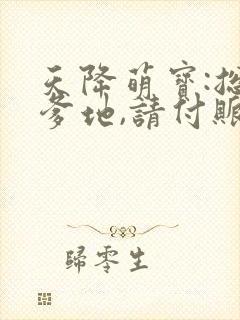 天降萌寶:總
爹地,請付賬
歸零生